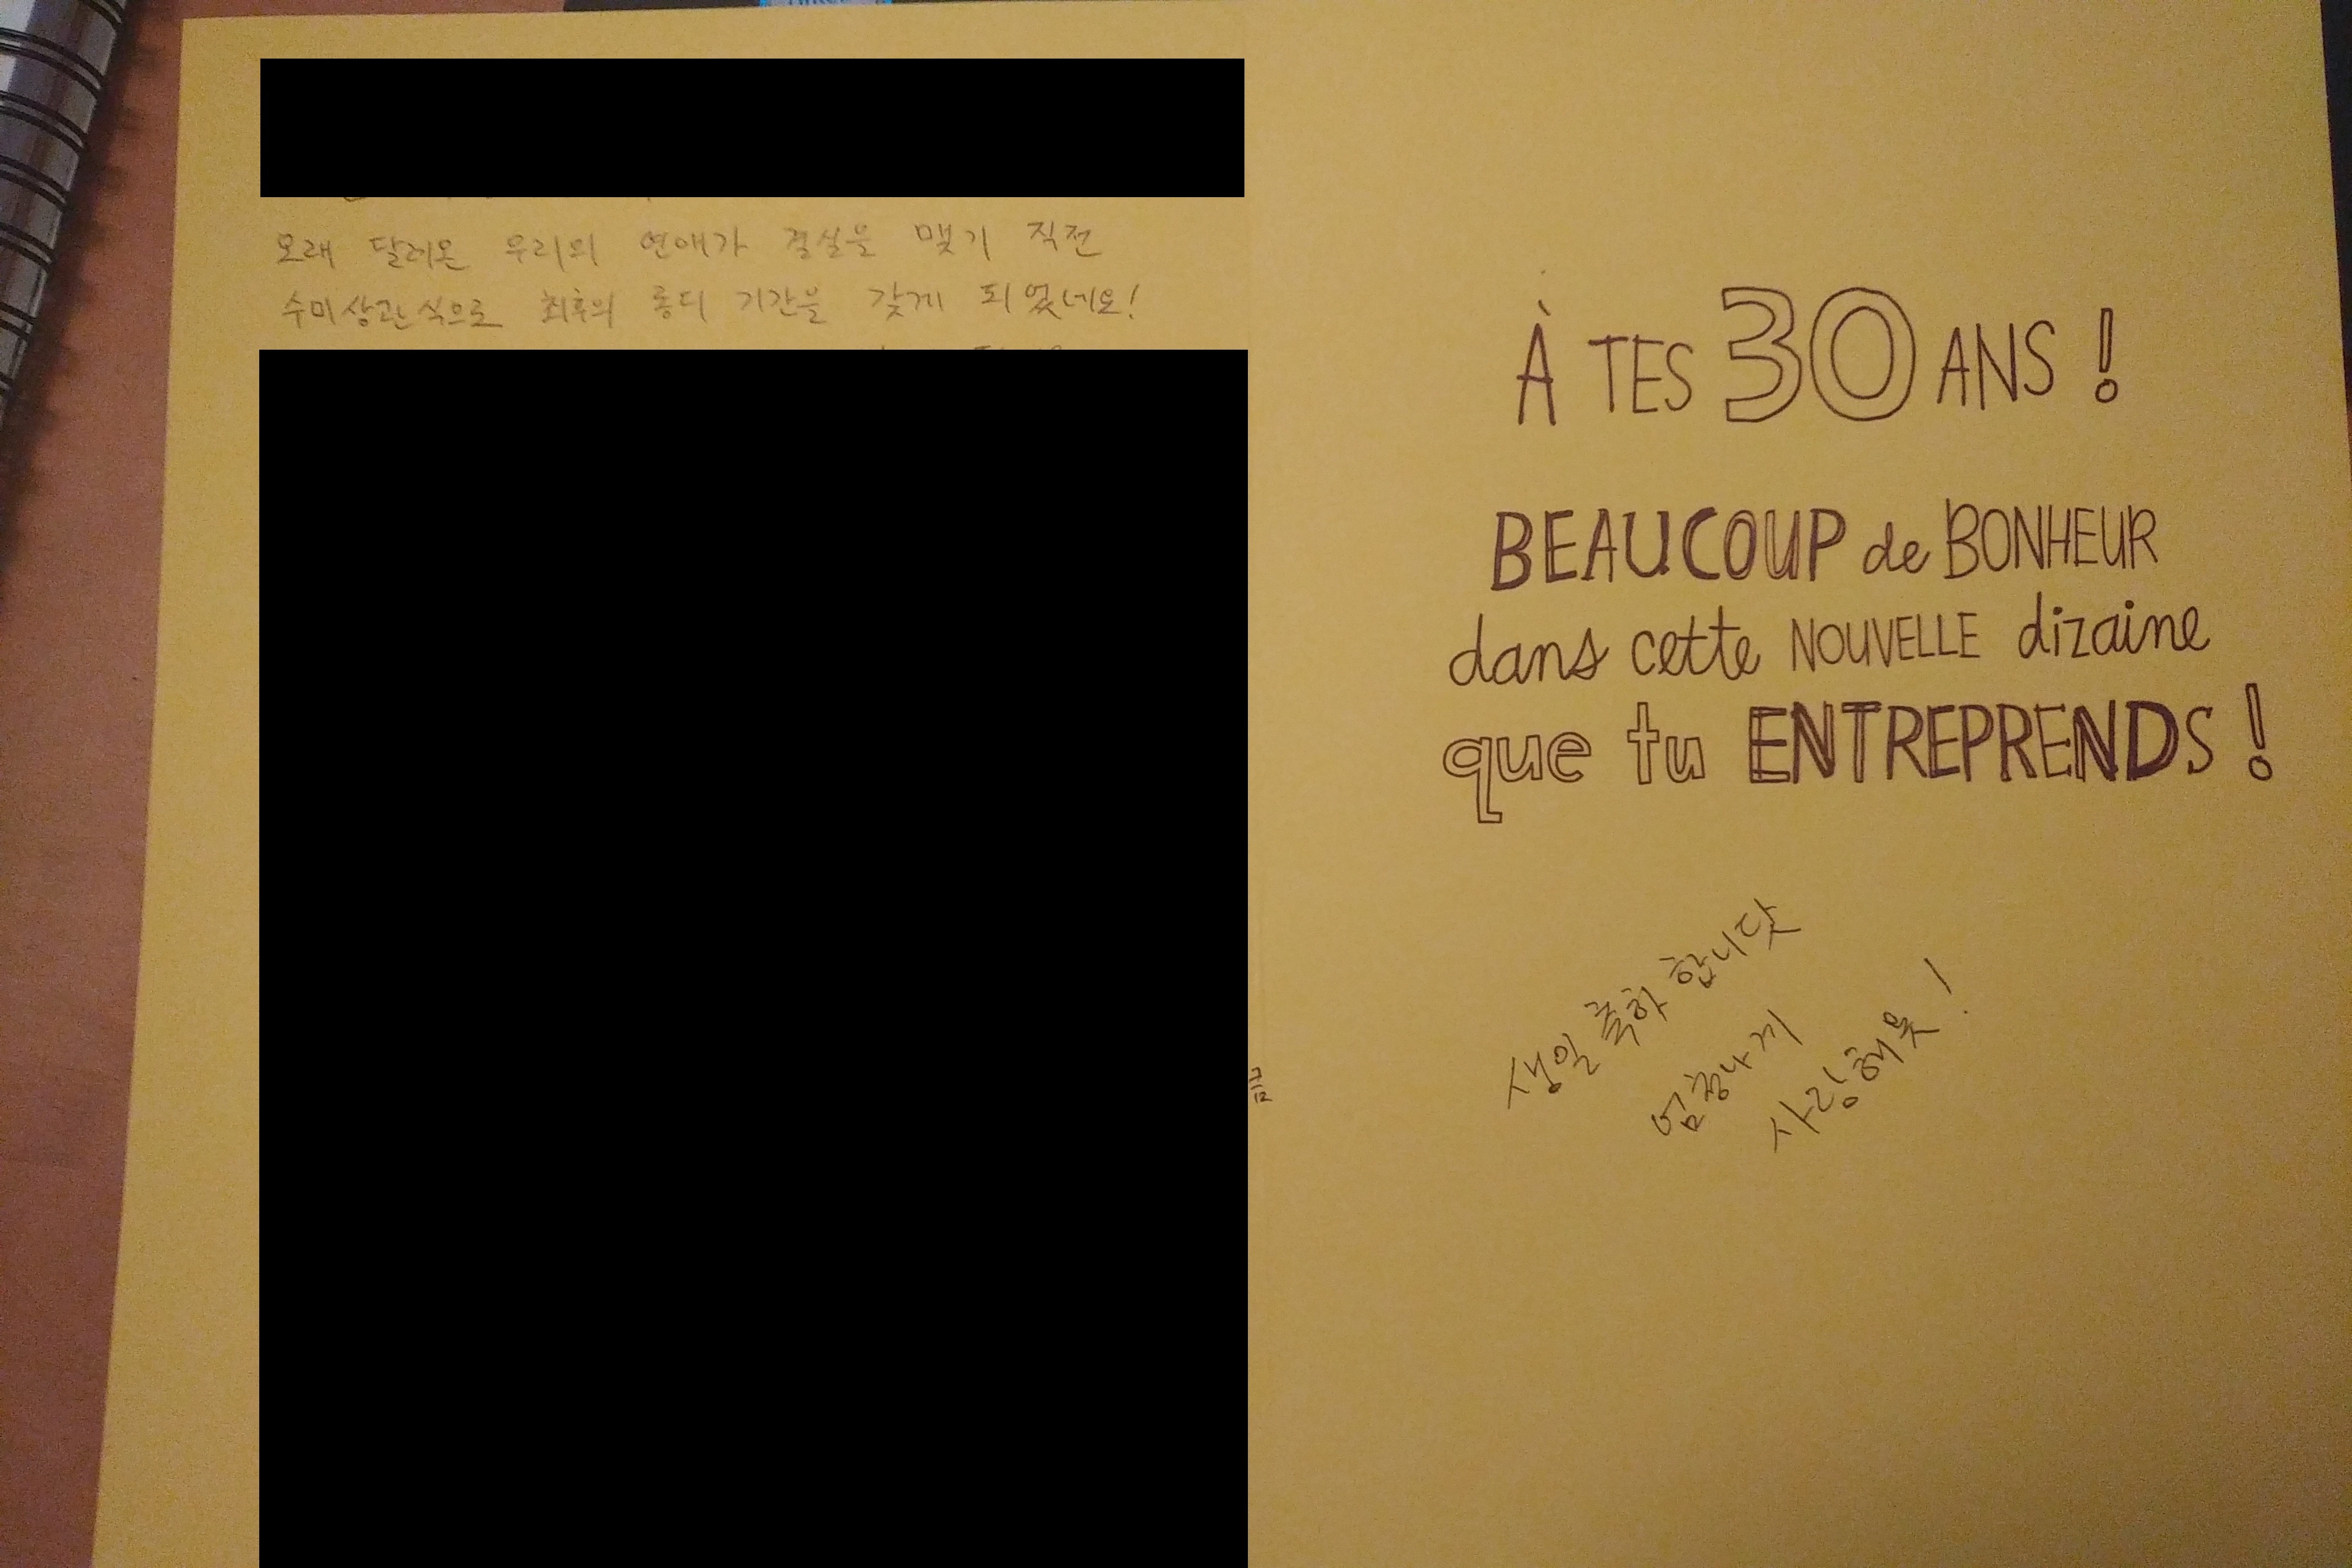 오래 달려온 우리의 연애가 결실을 맺기 직전
수미상관식으로 최후의 롱디 기간을 갖게 되었네요!
À TES 30 ANS !
BEAUCOUP de BONHEUR
dans cette NOUVELLE dizaine
que tu ENTREPRENDS !
생일 축하 합니닷
엄청나게
사랑해욧!